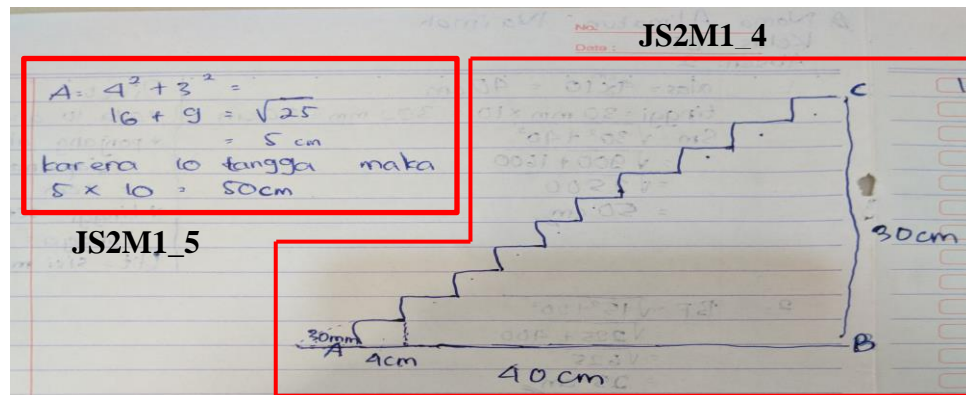 JS2M1_4
No:
Date :
A = 4² + 3² =
16 + 9 = √25
= 5 cm
karena 10 tangga maka
5 × 10 = 50cm
JS2M1_5
C
30cm
30mm
A
4cm
B
40 cm